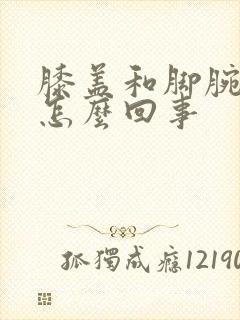 膝盖和脚腕
怎麽回事
孤獨成癮12190